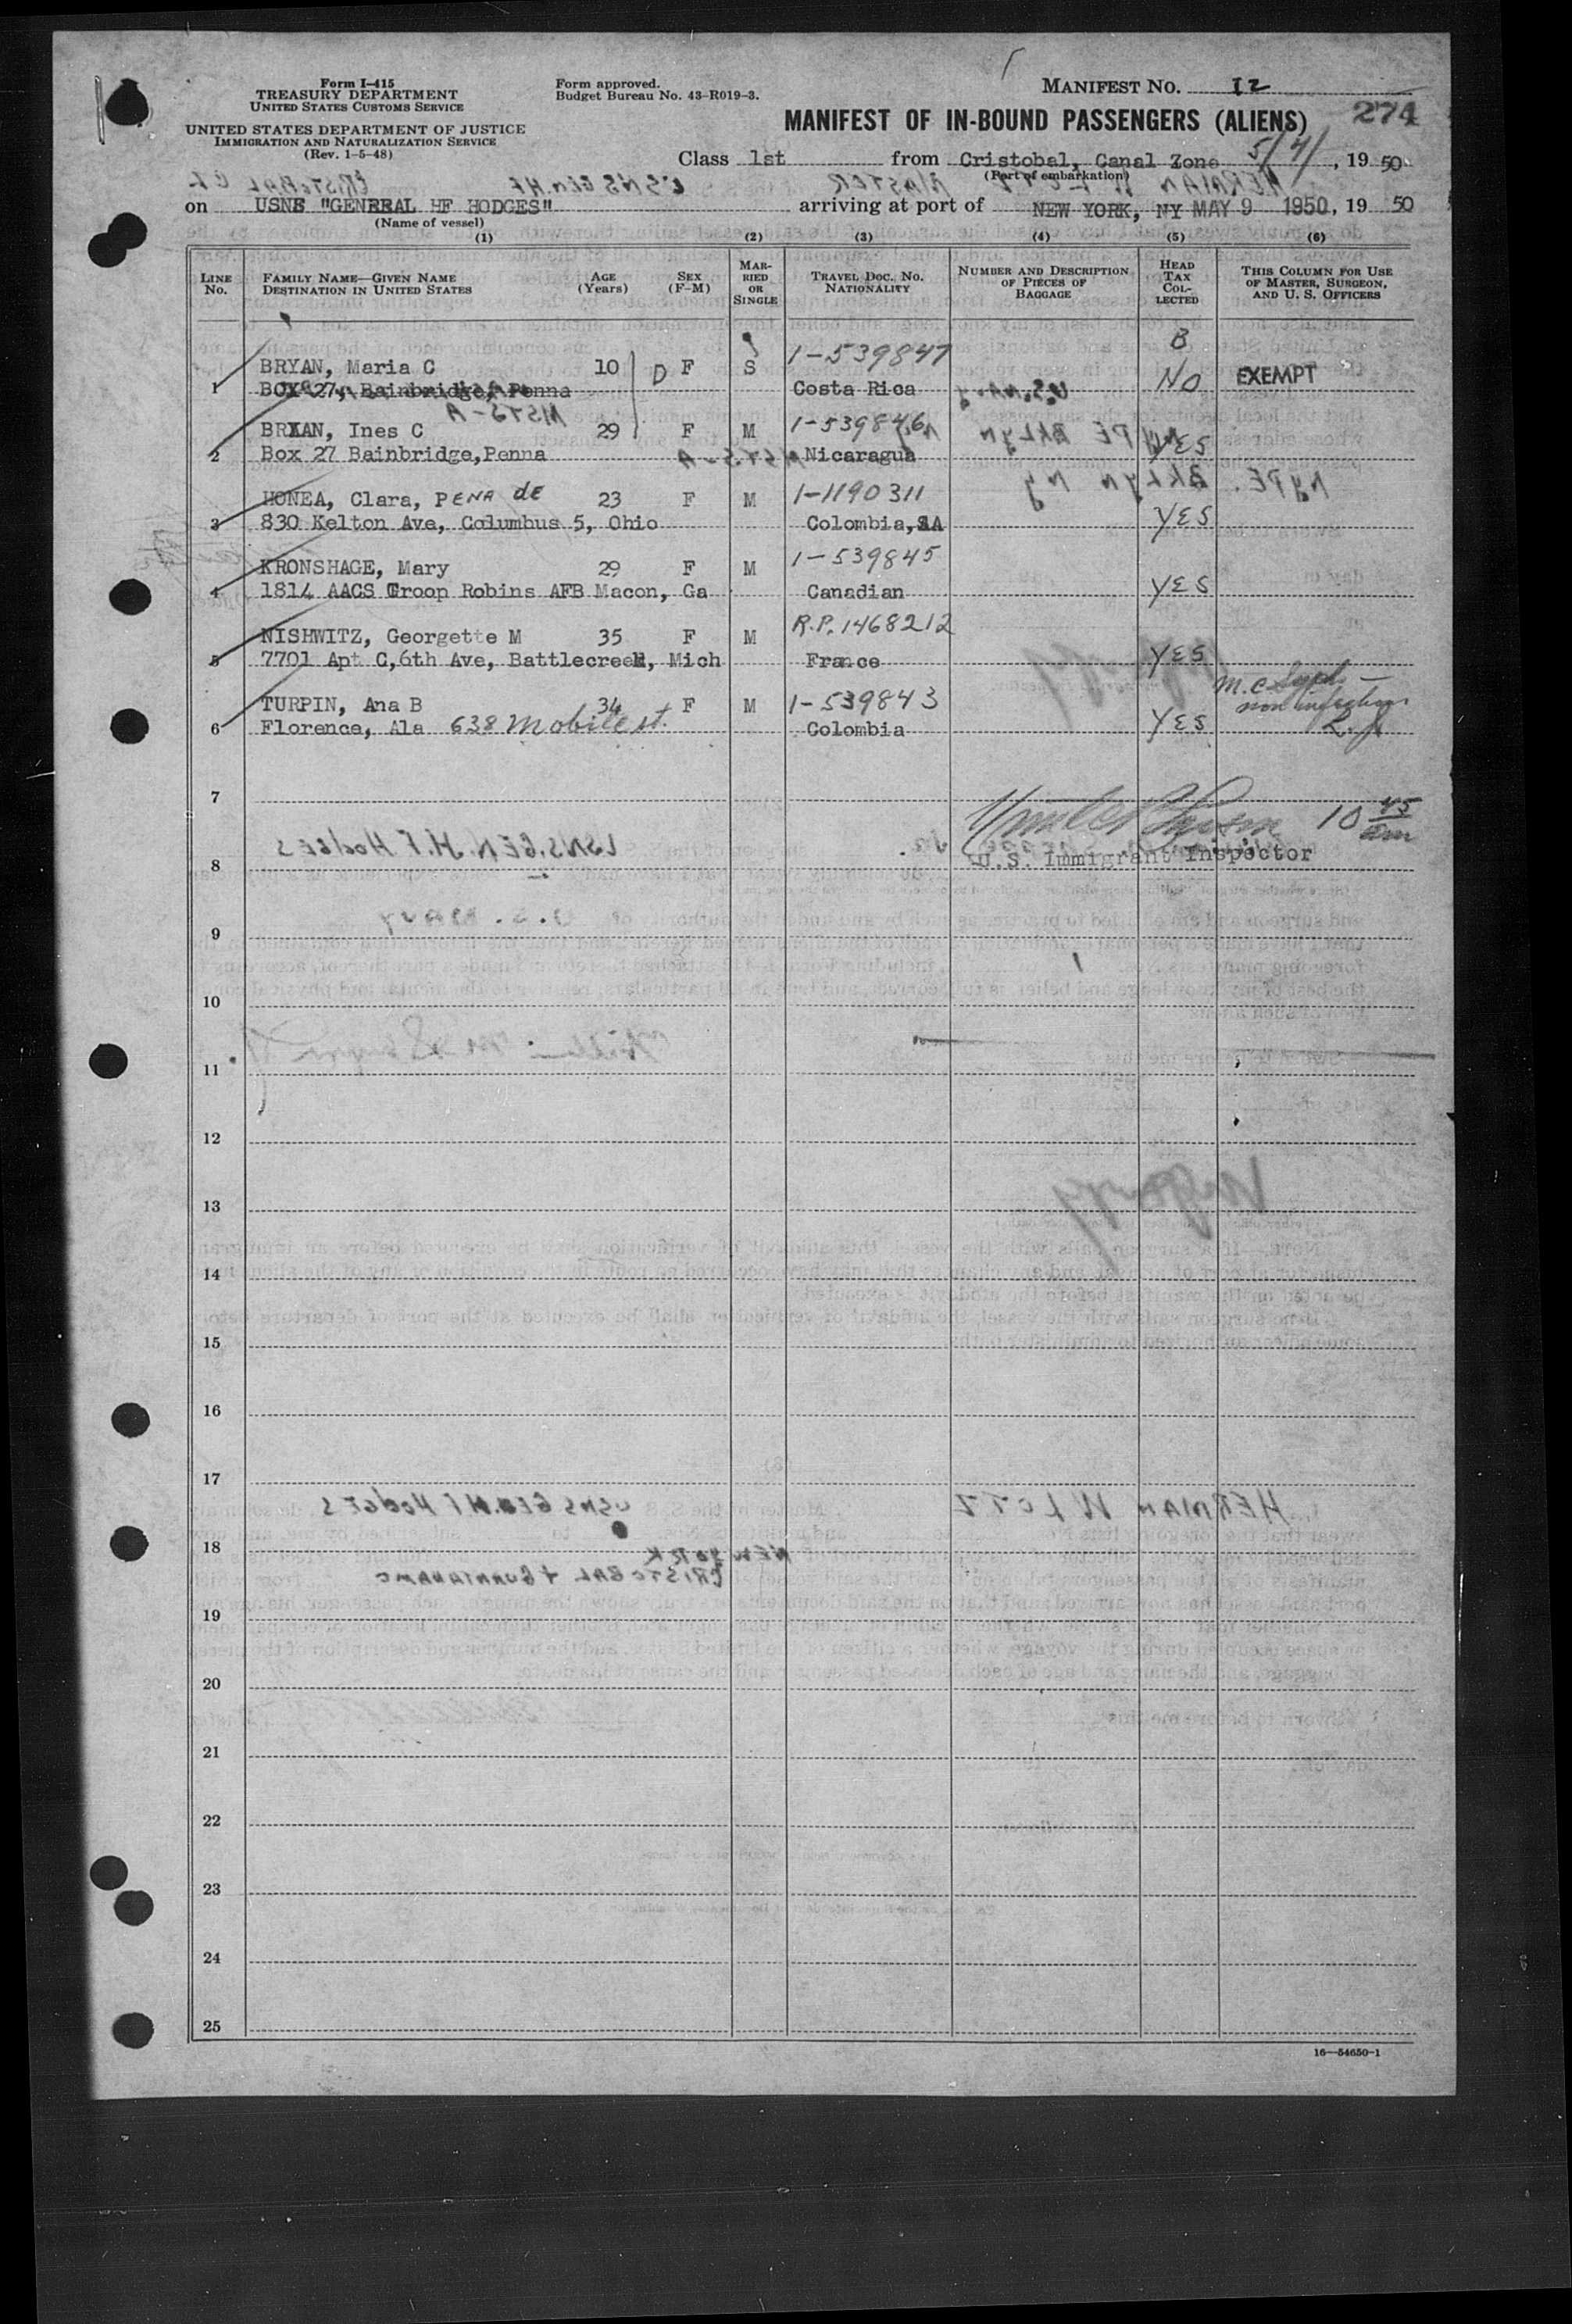 Form I-415
TREASURY DEPARTMENT
UNITED STATES CUSTOMS SERVICE
UNITED STATES DEPARTMENT OF JUSTICE
IMMIGRATION AND NATURALIZATION SERVICE
(Rev. 1-5-48)
Form approved.
Budget Bureau No. 43-R019-3.
MANIFEST NO. 12
MANIFEST OF IN-BOUND PASSENGERS (ALIENS) 274
Class 1st from Cristobal, Canal Zone 5/4/, 19 50
(Port of embarkation)
on USNS "GENERAL HF HODGES" arriving at port of NEW YORK, NY MAY 9 1950, 19 50
(Name of vessel)
(1) (2) (3) (4) (5) (6)
LINE NO. FAMILY NAME—GIVEN NAME DESTINATION IN UNITED STATES AGE (Years) SEX (F-M) MARRIED OR SINGLE TRAVEL DOC. NO. NATIONALITY NUMBER AND DESCRIPTION OF PIECES OF BAGGAGE HEAD TAX COLLECTED THIS COLUMN FOR USE OF MASTER, SURGEON, AND U. S. OFFICERS
BRYAN, Maria C 10 D F S 1-539847 B
1 BOX 27, Bainbridge, Penna Costa Rica NO EXEMPT
BRYAN, Ines C 29 F M 1-539846
2 Box 27 Bainbridge, Penna Nicaragua YES
HONEA, Clara, PENA de 23 F M 1-1190311
3 830 Kelton Ave, Columbus 5, Ohio Colombia, SA YES
KRONSHAGE, Mary 29 F M 1-539845
4 1814 AACS Troop Robins AFB Macon, Ga Canadian YES
NISHWITZ, Georgette M 35 F M R.P. 1468212
5 7701 Apt C, 6th Ave, Battlecreek, Mich France YES
TURPIN, Ana B 34 F M 1-539843 M.C.
6 Florence, Ala 638 Mobile st. Colombia YES
7
10 45 am
8 U.S. Immigrant Inspector
9
10
11
12
13
14
15
16
17
18
19
20
21
22
23
24
25
16—54650-1